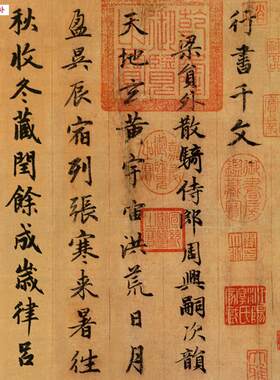 行書千文
梁員外散騎侍郎周興嗣次韻
天地玄黄宇宙洪荒日月
盈昃辰宿列張寒来暑往
秋收冬藏閏餘成歲律呂